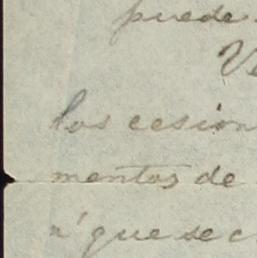 puede
V
los cesion
mentos de
n' que se c